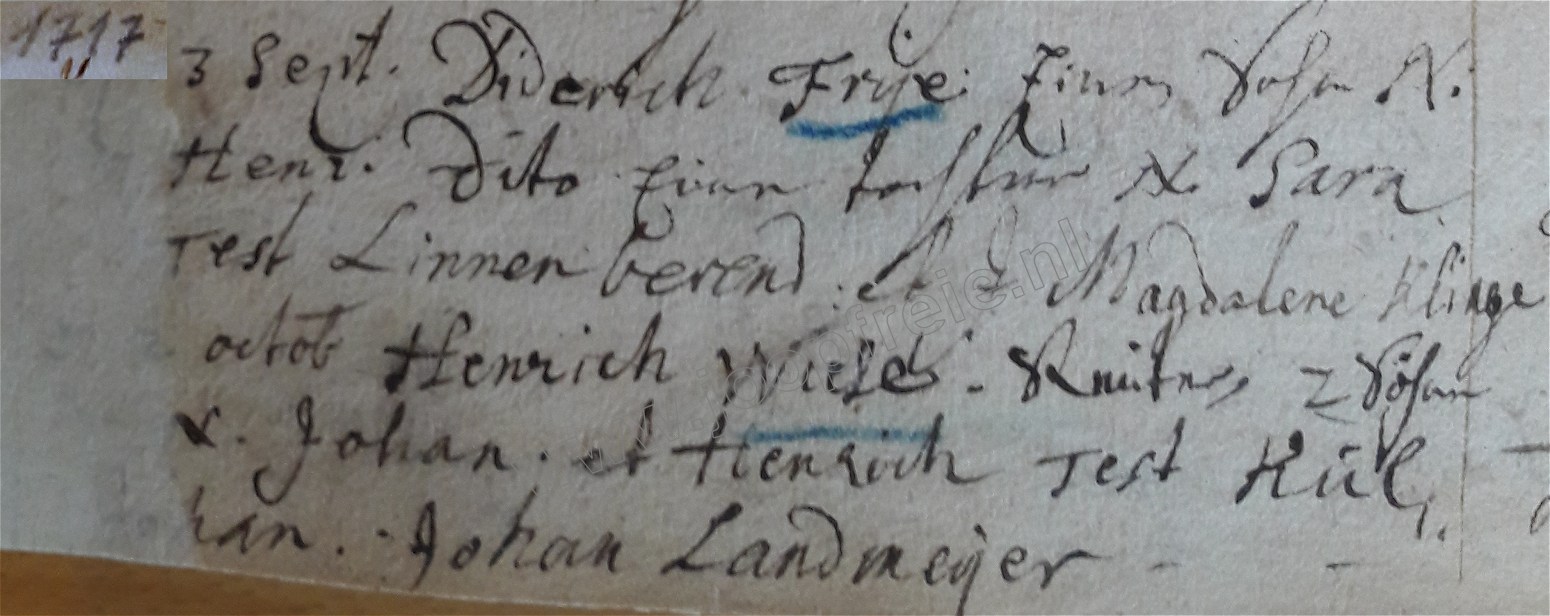 1717
3 Sept. Diderich Frye. Einen Sohn N.
Henr. Dito Eine tochter N. Sara
Test Linnen berend. et Magdalene Klinge
octob Henrich Wiese - 2 Söhne
N. Johan. et Henrich Test
han. Johan Landmeyer -